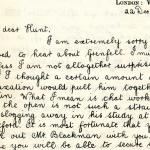 LONDON: W
22 Dec
dear Hunt.
I am extremely sorry
to hear about Grenfell. I mu
less I am not altogether surprise
I thought a certain amount
axation would pull him togethe
in. What I mean is that work
the open is not such a strain
slogging away in his study at
ford. It is most fortunate that y
out Mr Blackman with you
you will be able to secure